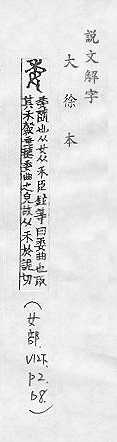 說文解字
大徐本
委隨也从女从禾臣鉉等曰委曲也取
其禾穀垂穗委曲之皃故从禾於詭切
(女部.
V12下.
p2.
b8.)